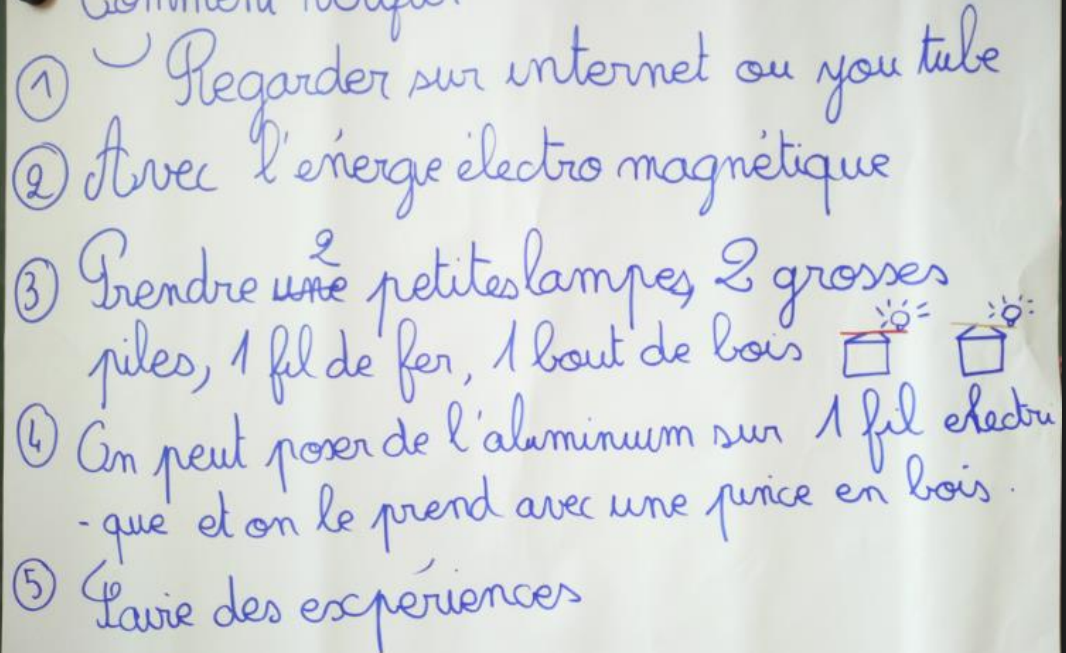 Comment
① Regarder sur internet ou you tube
② Avec l'énergie électro magnétique
2
③ Prendre une petites lampes, 2 grosses
piles, 1 fil de fer, 1 bout de bois
④ On peut poser de l'aluminium sur 1 fil électri
-que et on le prend avec une pince en bois.
⑤ Faire des expériences